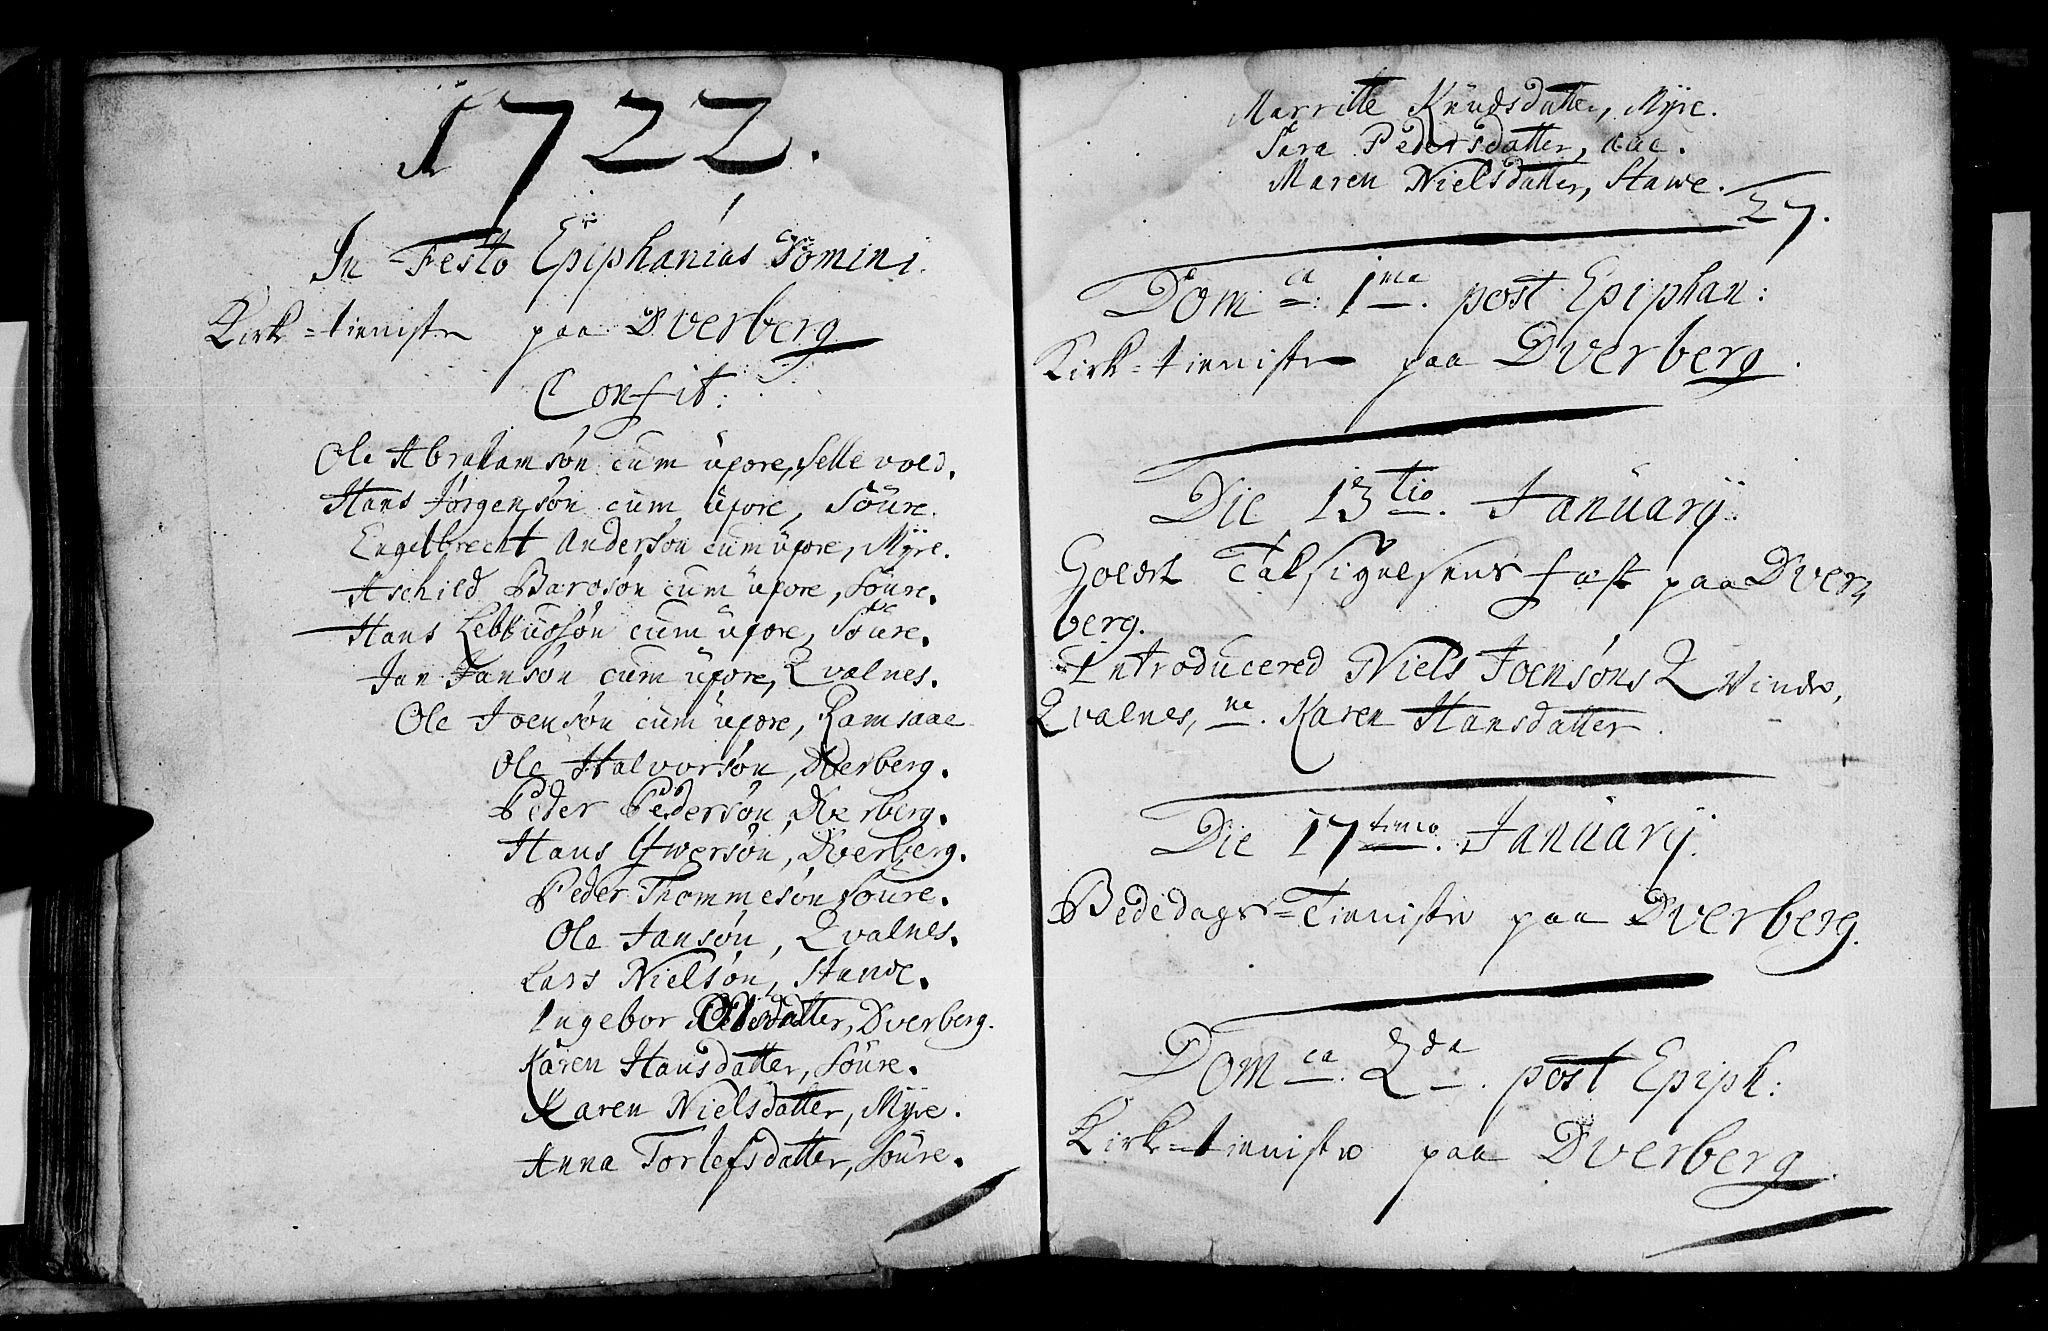 1722.
In Festo Epiphanias Domini.
Kirk-tieniste paa Dverberg
Confit:
Ole Abrahamsøn cum uxore, Sellevold.
Hans Jørgensøn cum uxore, Søure.
Engelbrecht Andersøn cum uxore, Myre.
Aschild Barosøn cum uxore, Søure.
Hans cum uxore, Søure.
Jan Jansøn cum uxore, Qvalnes.
Ole Joensøn cum uxore, Ramsaae
Ole Halvorsøn, Dverberg.
Peder Pedersøn, Dverberg.
Hans Ifwersøn, Dverberg.
Peder Thommesøn Søure.
Ole Jansøn, Qvalnes.
Lars Nielsøn, Stawe.
Ingebor Olsdatter, Dverberg.
Karen Hansdatter, Søure.
Karen Nielsdatter, Myre.
Anna Torlefsdatter, Søure.
Marritte Knudsdatter, Myre.
Sara Pedersdatter, Aae.
Maren Nielsdatter, Stawe.
27.
Dom ca: 1ma. post Epiphan:
Kirk-tieniste paa Dverberg.
Die 13tio. Januarij.
Holdt Taksigelsens fæst paa Dver,
berg.
Introducered Niels Joensøns Qvinde,
Qvalnes, ne. Karen Hansdatter.
Die 17timo. Januarij.
Bededags-Tieniste paa Dverberg.
Dom ca. 2da. post Epiph:
Kirk-tieniste paa Dverberg.